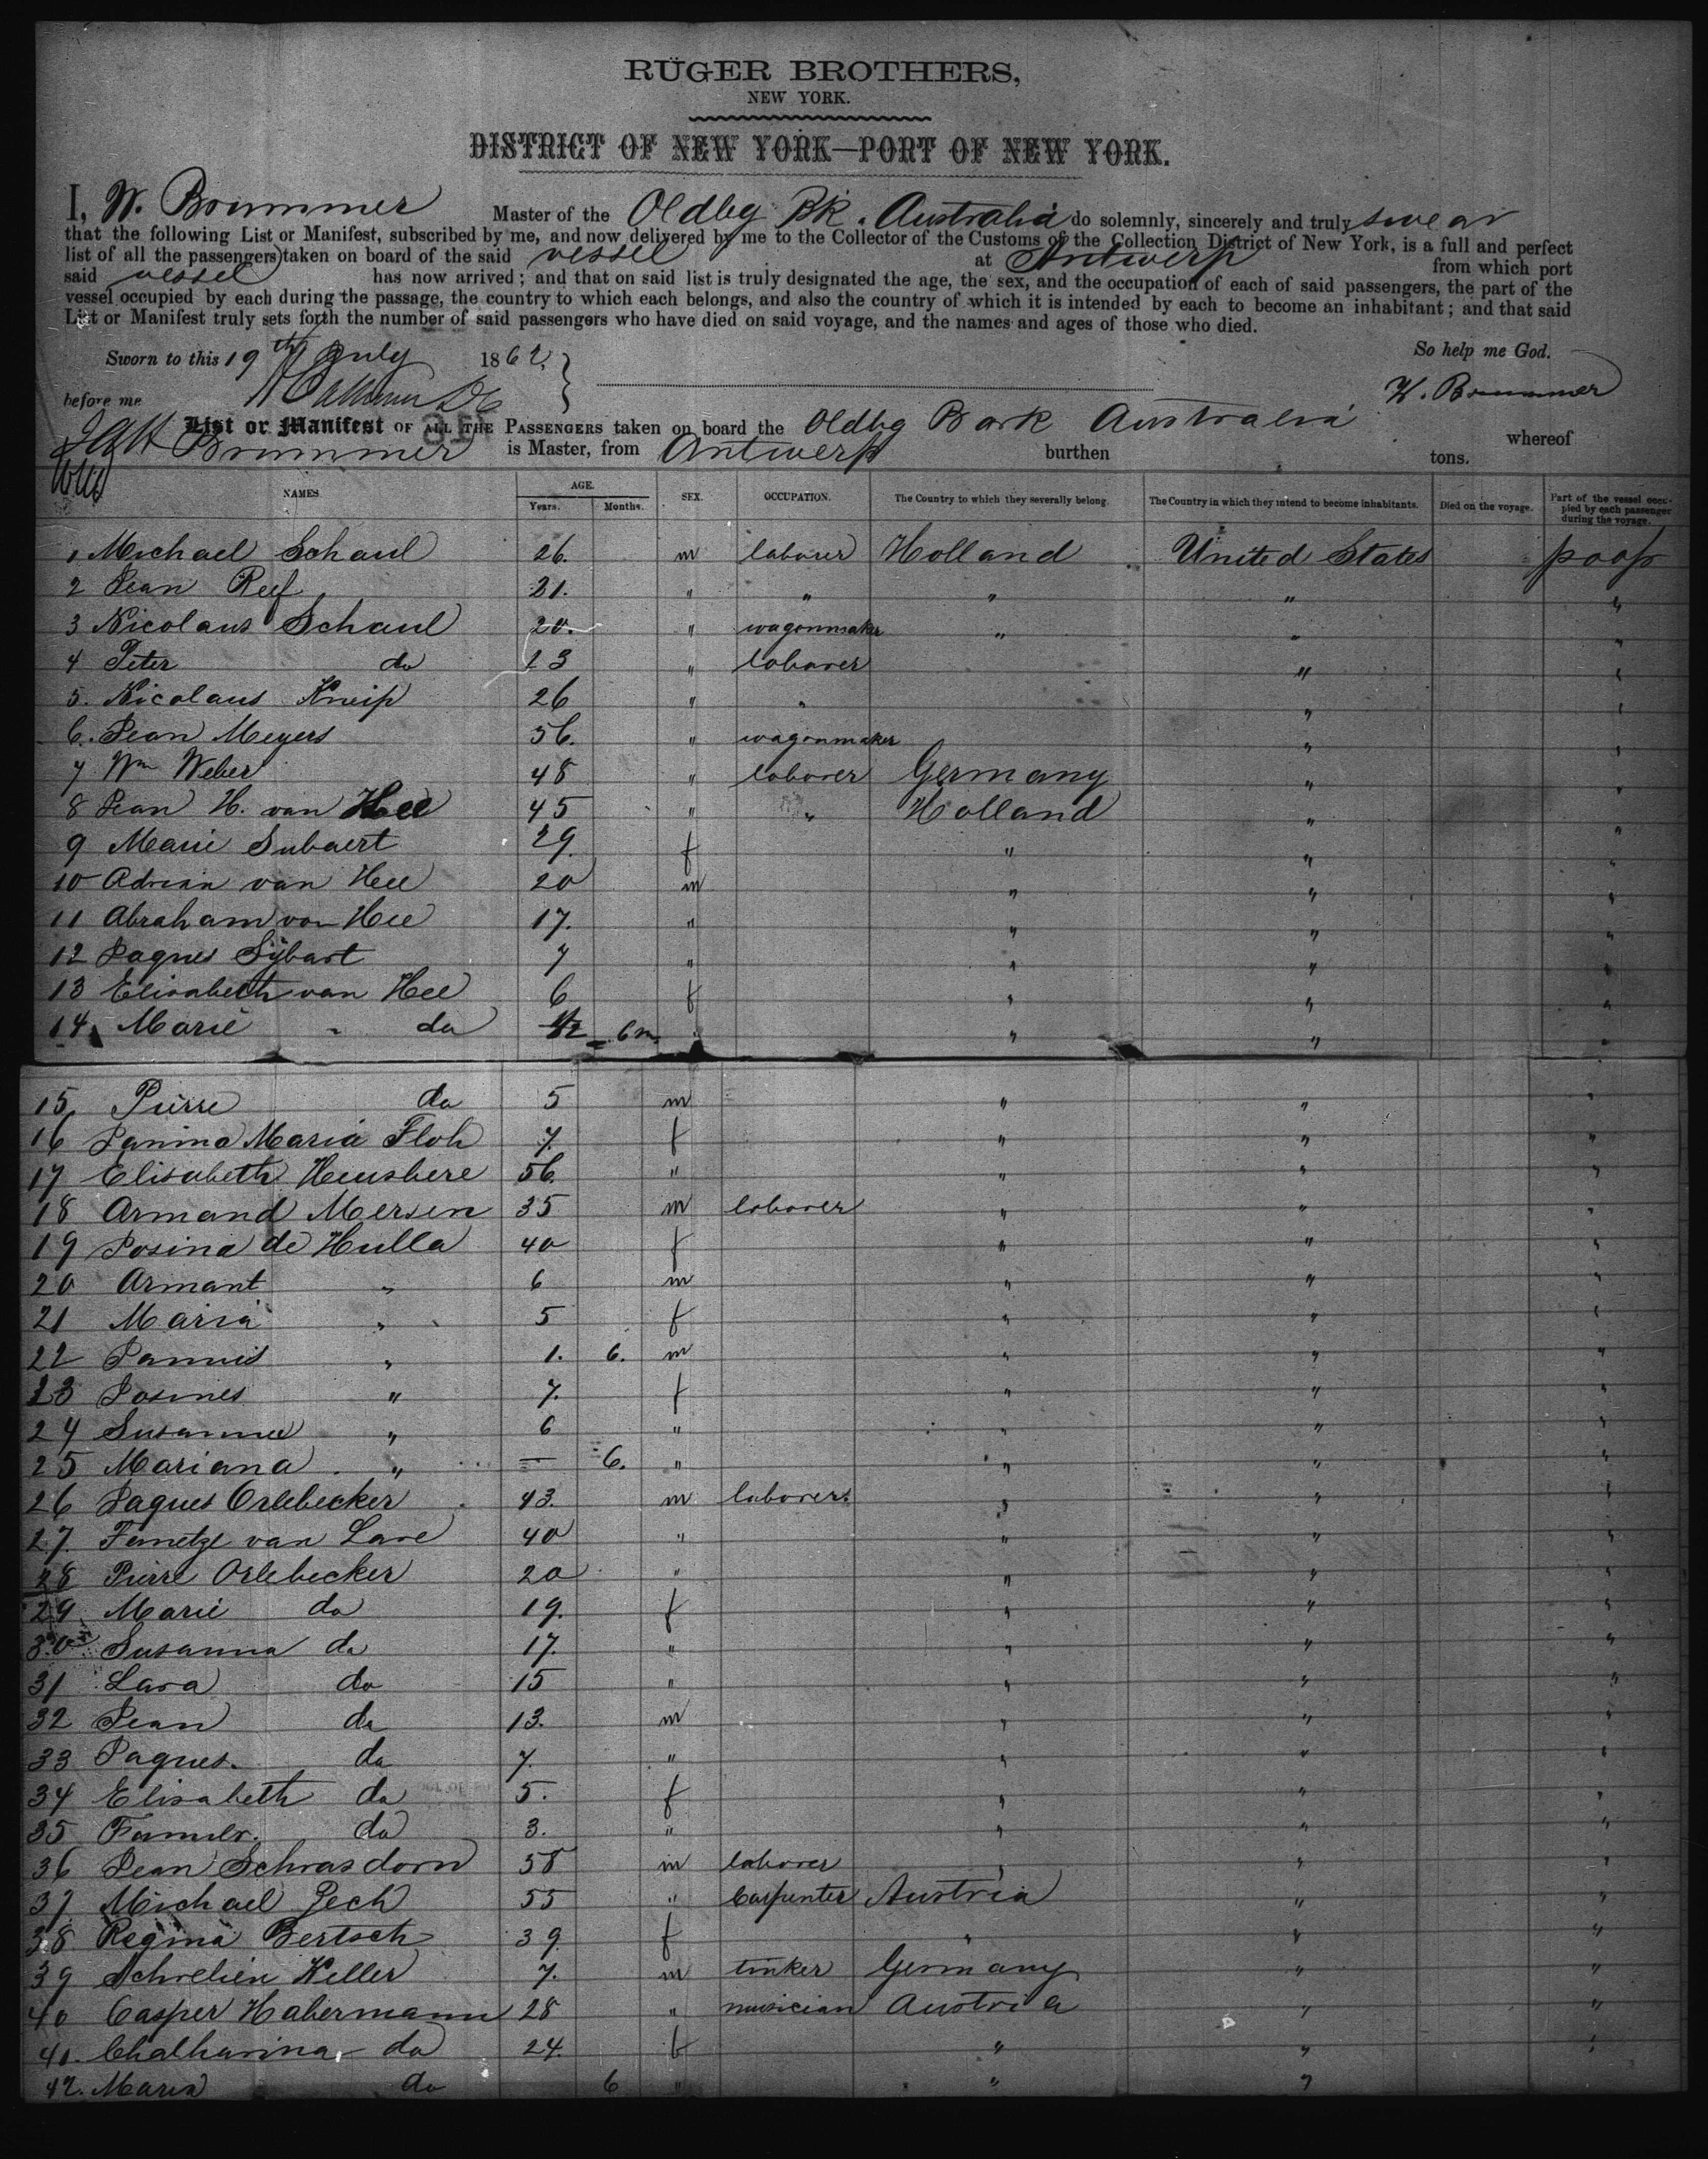 RÜGER BROTHERS,
NEW YORK.
DISTRICT OF NEW YORK—PORT OF NEW YORK.
I, W. Brummer Master of the Oldbg Bk. Australia do solemnly, sincerely and truly swear
that the following List or Manifest, subscribed by me, and now delivered by me to the Collector of the Customs of the Collection District of New York, is a full and perfect
list of all the passengers taken on board of the said vessel at Antwerp from which port
said vessel has now arrived; and that on said list is truly designated the age, the sex, and the occupation of each of said passengers, the part of the
vessel occupied by each during the passage, the country to which each belongs, and also the country of which it is intended by each to become an inhabitant; and that said
List or Manifest truly sets forth the number of said passengers who have died on said voyage, and the names and ages of those who died.
Sworn to this 19th July 1862 So help me God.
before me W. Brummer
List or Manifest OF ALL THE PASSENGERS taken on board the Oldbg Bark Australia whereof
Brummer is Master, from Antwerp burthen tons.
NAMES. AGE. Years. Months. SEX. OCCUPATION. The Country to which they severally belong. The Country in which they intend to become inhabitants. Died on the voyage. Part of the vessel occupied by each passenger during the voyage.
1 Michael Schaul 26. m labour Holland United States poop
2 Jean Reef 21. " " " " "
3 Nicolaus Schaul 20. " wagonmaker " " "
4 Peter do 13 " laborer " "
5. Nicolaus Kneip 26 " " " "
6. Jean Meyers 56. " wagonmaker " "
7 Wm Weber 48 " laborer Germany " "
8 Jean H. van Hee 45 " " Holland " "
9 Marie Subaert 29. f " " "
10 Adrian van Hee 20 m " " "
11 Abraham van Hee 17. " " " "
12 Jaques Sybart 7 " " " "
13 Elisabeth van Hee 6 f " " "
14 Marie " do 6 m. " " " "
15 Pierre do 5 m " " "
16 Janina Maria Floh 7. f " " "
17 Elisabeth Heusbere 56. " " " "
18 Armand Mersen 35 m laborer " " "
19 Josina de Hulla 40 f " " "
20 Armant " 6 m " " "
21 Maria " 5 f " " "
22 Jannis " 1. 6. m " " "
23 Josines " 7. f " " "
24 Susanne " 6 " " " "
25 Mariana " — 6. " " " "
26 Jaques Orlebecker 43. m laborers " " "
27. Fametze van Lare 40 " " " "
28 Pierre Orlebecker 20 " " " "
29 Marie do 19. f " " "
30 Susanna do 17. " " " "
31 Lara do 15 " " " "
32 Jean do 13. m " " "
33 Jaques. do 7. " " " "
34 Elisabeth do 5. f " " "
35 do 3. " " " "
36 Jean Schrasdorn 58 m laborer " " "
37 Michael Zech 55 " Carpenter Austria " "
38 Regina Bertsch 39. f " " "
39 Keller 7. m tinker Germany " "
40 Casper Habermann 28 " musician Austria " "
41. Chatharina do 24. f " " "
42. Maria do 6 " " " "